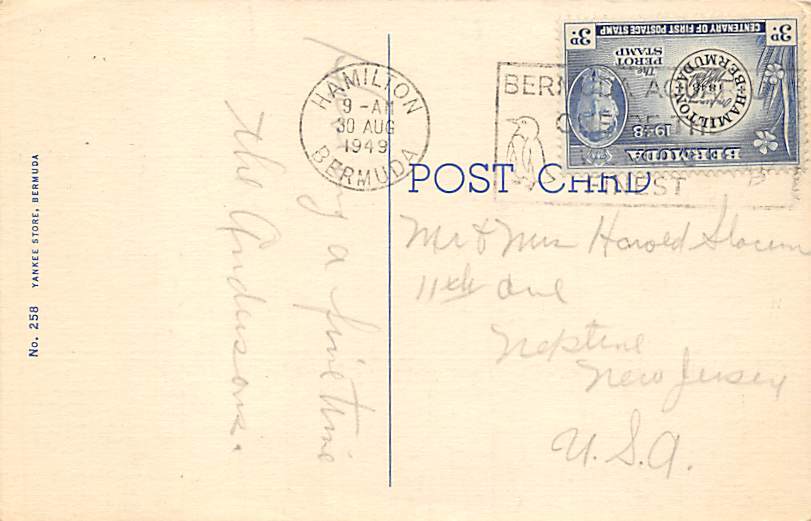 No. 258 YANKEE STORE, BERMUDA
a fine time
the Andersons.
HAMILTON
9 - AM
30 AUG
1949
BERMUDA
POST CARD
BERMUDA
3D CENTENARY OF FIRST POSTAGE STAMP 3D
The
PEROT
STAMP
HAMILTON
1848
BERMUDA
1948
BERMUDA
Mr & Mrs Harold Slocum
11th Ave
Neptune
New Jersey
U.S.A.